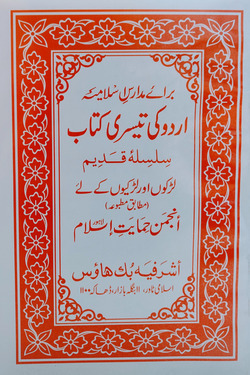 برائے مدارس اسلامیہ
اردو کی تیسری کتاب
سلسلۂ قدیم
لڑکوں اور لڑکیوں کے لئے
(مطابق مطبوعہ)
انجمن حمایت اسلام
اشرفیہ بک ہاؤس
اسلامی ٹاور، ۱۱ بنگلہ بازار، ڈھاکہ ۱۱۰۰